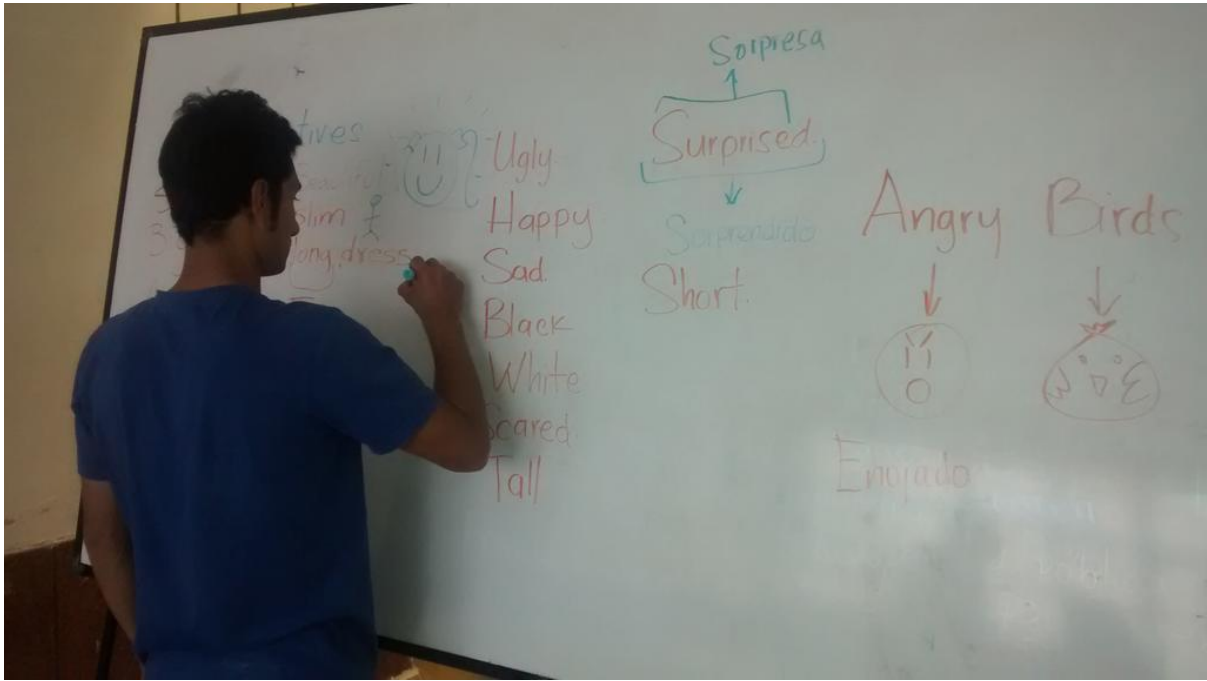 tives
Beautiful
Slim
long dress
Ugly
Happy
Sad
Black
White
Scared
Tall
Sorpresa
Surprised
Sorprendido
Short
Angry Birds
Enojado